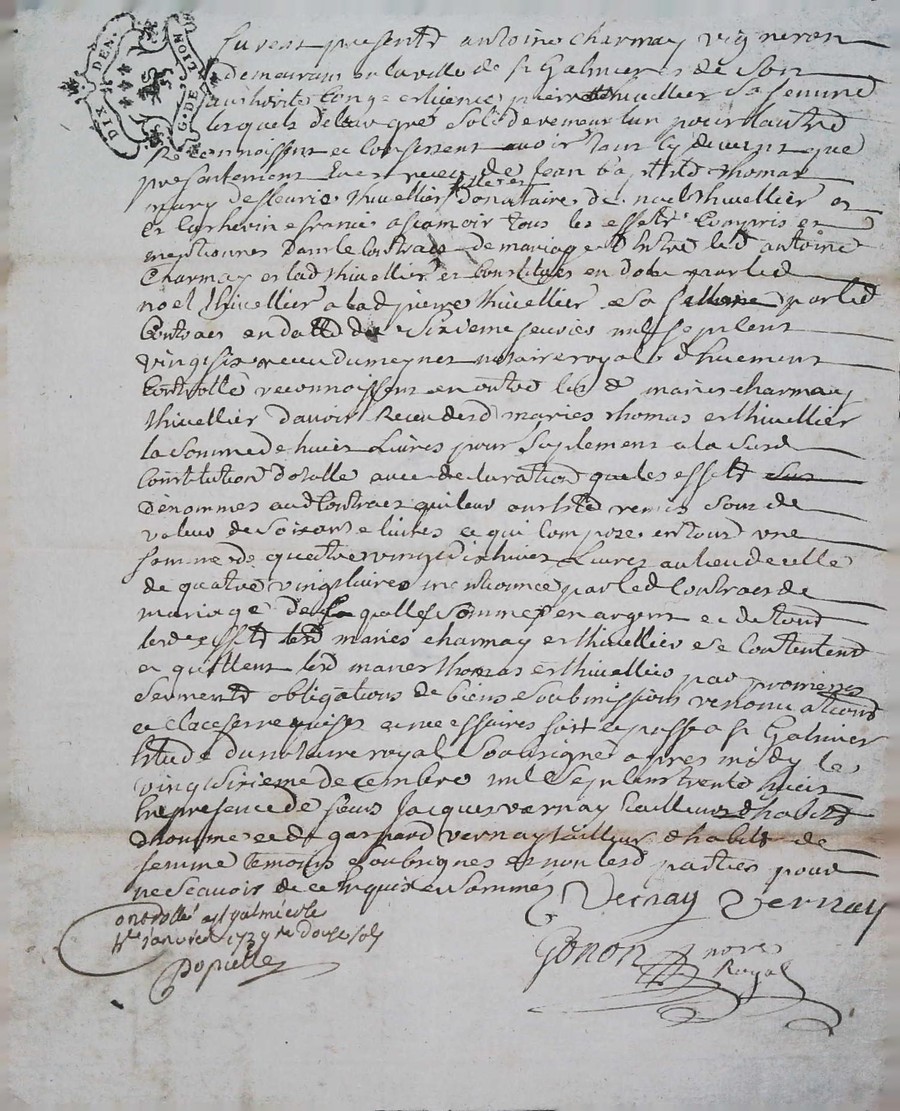 DIX DEN. G. DE LION
furent presents antoine charmay vigneron
demeurant en la ville de st Galmier et de son
authorité Congé et licence pierrette thivellier sa femme
lesquels de leur gré solidairement lun pour lautre
Reconnoissent et Confessent avoir tout cy devant que
presentement Eu et receu de Jean baptiste thomas
mary de fleurie thivellier fille et donataire de noel thivellier et
et Catherine a scavoir tous les effets Compris et
mentionnes dans le Contrat de mariage dentre led antoine
Charmay et lad thivellier et Constitués en dot par led
noel thivellier a lad pierrette thivellier sa fille par led
Contract en datte du sixieme janvier mil sept cent
vingt six receu dumeynet notaire royal dhuement
Controllé reconnoissent en outre les d maries charmay
thivellier davoir Receu desd maries thomas et thivellier
la somme de huit Livres pour suplement a la susd
Constitution dotalle avec declaration que les effets sus
dénommes aud Contract qui leur ont été remis sont de
valeur de soixante livres ce qui Compose en tout une
somme de quatre vingt dix huit Livres au lieu de celle
de quatre vingt livres mentionnée par led Contract de
mariage de la quelle somme en argent et de tous
lesd effets lesd maries charmay et thivellier se Contentent
et quittent lesd maries thomas et thivellier par promesses
serments obligations de biens soubmissions renonciations
et clauses requises et necessaires fait et passé a st Galmier
Etude du notaire royal soubsigné apres midy le
vingt sixieme decembre mil sept cent trente huit
En presence de sieurs Jacques vernay tailleur dhabits
dhomme et de gaspard vernay tailleur dhabits de
femme temoins soubsignes et non lesd parties pour
ne scavoir de ce requis et sommés
Vernay Vernay
Controllé a st galmier le
janvier 1739 re douze sols
Popielle
Gonon nore
Royal